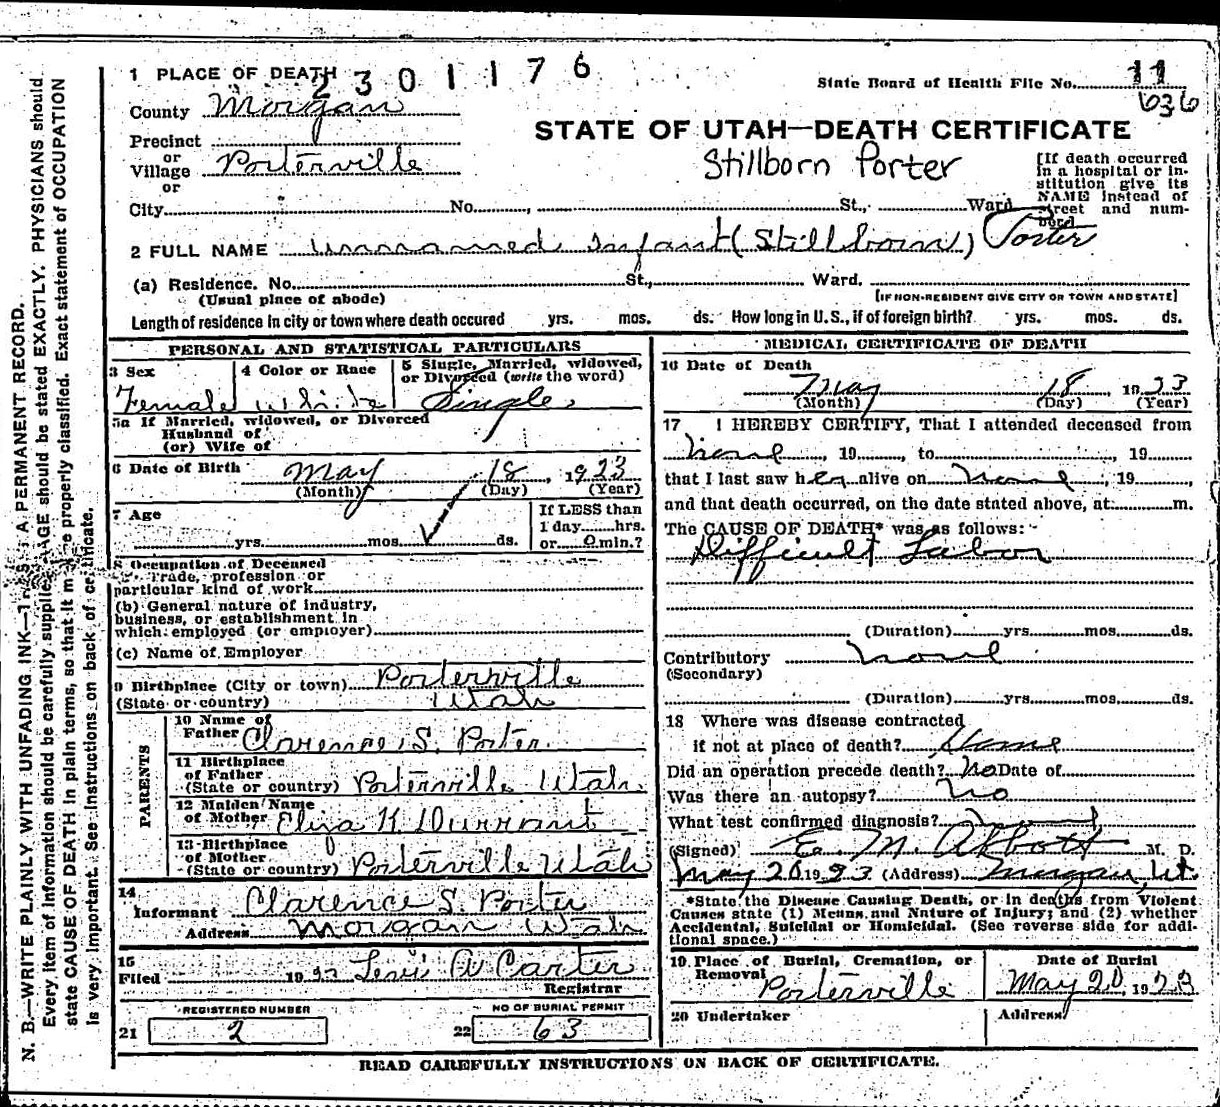 1 PLACE OF DEATH 2301176
State Board of Health File No. 11
636
County Morgan
STATE OF UTAH—DEATH CERTIFICATE
Precinct
or
Village Porterville
or
Stillborn Porter
[If death occurred in a hospital or institution give its NAME instead of street and number]
City No. , St., Ward
2 FULL NAME Unnamed Infant (Stillborn) Porter
(a) Residence. No. St., Ward.
(Usual place of abode)
[IF NON-RESIDENT GIVE CITY OR TOWN AND STATE]
Length of residence in city or town where death occured yrs. mos. ds. How long in U. S., if of foreign birth? yrs. mos. ds.
PERSONAL AND STATISTICAL PARTICULARS
3 Sex Female
4 Color or Race White
5 Single, Married, widowed, or Divorced (write the word) Single
5a If Married, widowed, or Divorced
Husband of
(or) Wife of
6 Date of Birth May 18, 1923
(Month) (Day) (Year)
7 Age
yrs. mos. ds.
If LESS than
1 day hrs.
or 0 min.?
8 Occupation of Deceased
Trade, profession or
particular kind of work
(b) General nature of industry,
business, or establishment in
which employed (or employer)
(c) Name of Employer
9 Birthplace (City or town) Porterville
(State or country) Utah
PARENTS
10 Name of Father Clarence S. Porter
11 Birthplace
of Father
(State or country) Porterville Utah
12 Maiden Name
of Mother Eliza K Durrant
13 Birthplace
of Mother
(State or country) Porterville Utah
14
Informant Clarence S. Porter
Address Morgan Utah
15
Filed 19 Levi A Carter
Registrar
REGISTERED NUMBER
21 2
NO OF BURIAL PERMIT
22 63
MEDICAL CERTIFICATE OF DEATH
16 Date of Death
May 18 1923
(Month) (Day) (Year)
17 I HEREBY CERTIFY, That I attended deceased from
none, 19 , to , 19
that I last saw her alive on none, 19 ,
and that death occurred, on the date stated above, at m.
The CAUSE OF DEATH* was as follows:
Difficult Labor
(Duration) yrs. mos. ds.
Contributory none
(Secondary)
(Duration) yrs. mos. ds.
18 Where was disease contracted
if not at place of death? Home
Did an operation precede death? No Date of
Was there an autopsy? No
What test confirmed diagnosis?
(Signed) E. M. Abbott M. D.
May 20 1923 (Address) Morgan, Ut.
*State the Disease Causing Death, or in deaths from Violent
Causes state (1) Means and Nature of Injury; and (2) whether
Accidental, Suicidal or Homicidal. (See reverse side for addi-
tional space.)
19 Place of Burial, Cremation, or Removal Porterville
Date of Burial
May 20, 1923
20 Undertaker
Address
READ CAREFULLY INSTRUCTIONS ON BACK OF CERTIFICATE.
N. B.—WRITE PLAINLY WITH UNFADING INK— A PERMANENT RECORD.
Every item of information should be carefully supplied. AGE should be stated EXACTLY. PHYSICIANS should
state CAUSE OF DEATH in plain terms, so that it may be properly classified. Exact statement of OCCUPATION
is very important. See instructions on back of certificate.